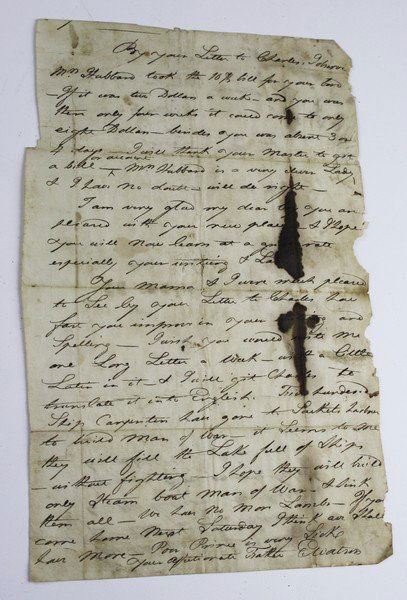 By your Letter to Charles, I
Mrs Hubbard took the 10$ bill for your
If it was two Dollars a week - and you was
there only four weeks it could come to only
eight Dollars - besides you was absent 3 or
days - I will thank your Master to get
a bill - Mrs Hubbard is a very Lady
or account
& I have no doubt - will do right -
I am very glad my dear you are
pleased with your new place - I hope
you will now learn at a rate
especially your writing I
Your Mamma & I were much pleased
to See by your Letter to Charles how
fast you improve in your and
Spelling - I wish you would write me
one Long Letter a Week - with a Little
Latin in it & I will get Charles to
translate it into English. Two hundred
Ship Carpenters have gone to Sackets harbour
to build Man of War - it Seems to me
they will fill the Lake full of Ships
- without fighting - I hope they will build
only Steam boat Man of War - & Sink
them all - We have No More Lambs - If you
come home Next Saturday I think we Shall
have More - Poor Prince is very Sick
Your affectionate Father E Watson